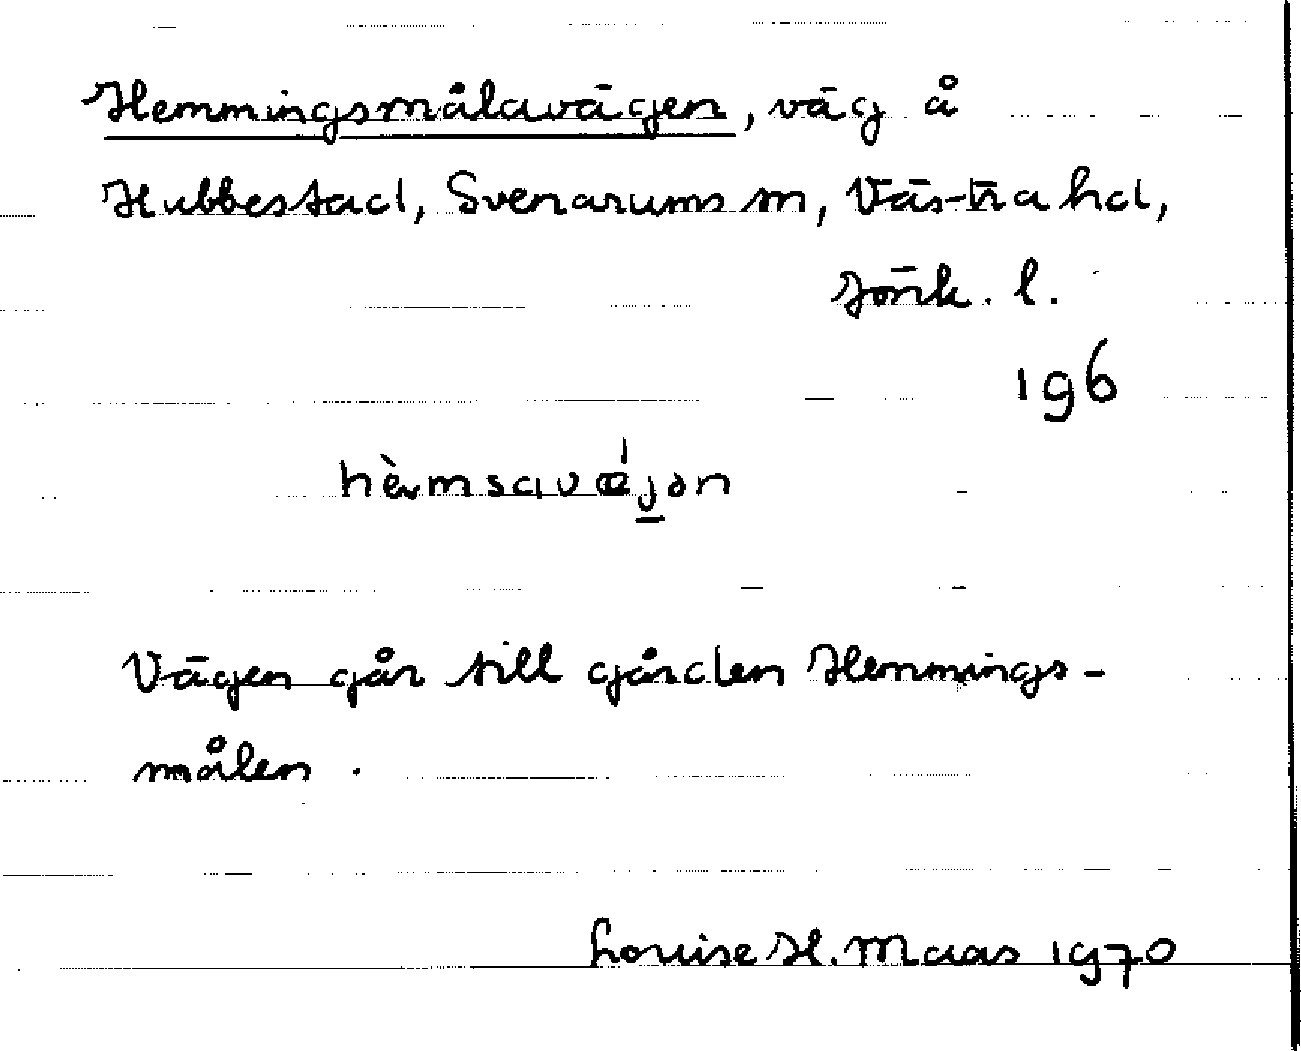 Hemmingsmålavägen, väg å
Hubbestad, Svenarums sn, Västra hd,
Jönk. l.
196
hèmsavǽjən
Vägen går till gården Hemmings-
målen.
Louise H. Maas 1970